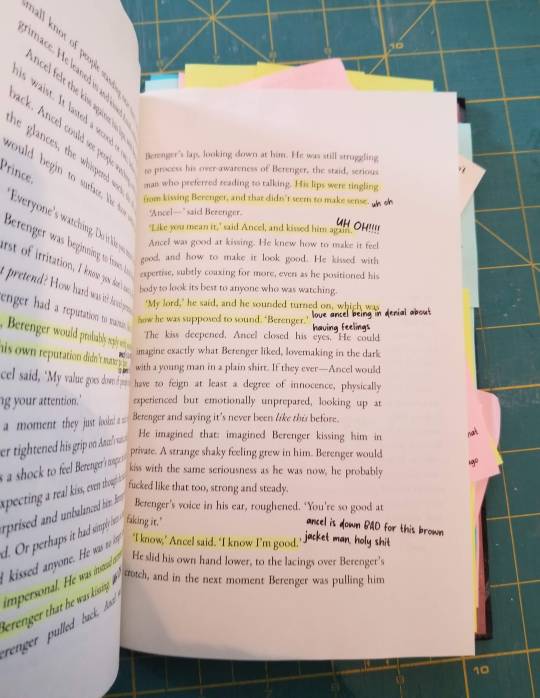 small knot of people standing
grimace. He leaned in and kissed
Ancel felt the kiss against his lips
his waist. It lasted a second or
back. Ancel could see people
the glances, the whispered
would begin to surface, like
Prince.
'Everyone's watching. Do it like you
Berenger was beginning to frown.
urst of irritation, I know you don't
I pretend? How hard was it?
enger had a reputation to maintain
, Berenger would probably reply
his own reputation didn't matter
cel said, 'My value goes down if
ng your attention.'
a moment they just looked at
er tightened his grip on Ancel's
s a shock to feel Berenger's tongue
xpecting a real kiss, even though
rprised and unbalanced him.
d. Or perhaps it had simply been
kissed anyone. He was no longer
impersonal. He was instead
Berenger that he was kissing.
erenger pulled back, Ancel
Berenger's lap, looking down at him. He was still struggling
to process his over-awareness of Berenger, the staid, serious
man who preferred reading to talking. His lips were tingling
from kissing Berenger, and that didn't seem to make sense. uh oh
'Ancel—' said Berenger.
UH OH!!!!
'Like you mean it,' said Ancel, and kissed him again.
Ancel was good at kissing. He knew how to make it feel
good, and how to make it look good. He kissed with
expertise, subtly coaxing for more, even as he positioned his
body to look its best to anyone who was watching.
'My lord,' he said, and he sounded turned on, which was
how he was supposed to sound. 'Berenger.' love ancel being in denial about
having feelings
The kiss deepened. Ancel closed his eyes. He could
imagine exactly what Berenger liked, lovemaking in the dark
with a young man in a plain shirt. If they ever—Ancel would
have to feign at least a degree of innocence, physically
experienced but emotionally unprepared, looking up at
Berenger and saying it's never been like this before.
He imagined that: imagined Berenger kissing him in
private. A strange shaky feeling grew in him. Berenger would
kiss with the same seriousness as he was now, he probably
fucked like that too, strong and steady.
Berenger's voice in his ear, roughened. 'You're so good at
faking it.'
ancel is down BAD for this brown
jacket man, holy shit
'I know,' Ancel said. 'I know I'm good.'
He slid his own hand lower, to the lacings over Berenger's
crotch, and in the next moment Berenger was pulling him
10
10